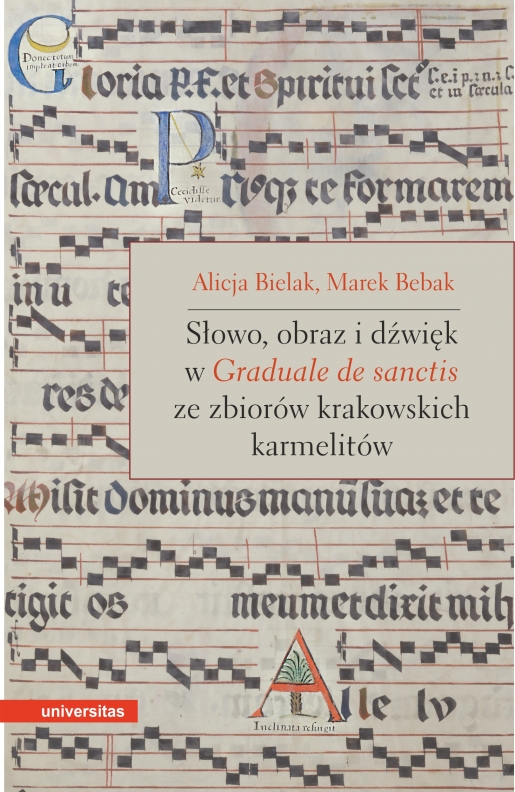 Donec totum
impleat orbem
Gloria P. F. et Spiritui sct
et in sæcula
sæcul. Am Priusq; te Formarem
Cecidisse
videtur
in u te
Alicja Bielak, Marek Bebak
Słowo, obraz i dźwięk
w Graduale de sanctis
ze zbiorów krakowskich
karmelitów
res de
Misit Dominus manū suaz et te
tigit os meum et dixit mih
Alle lv
Inclinata resurgit
universitas